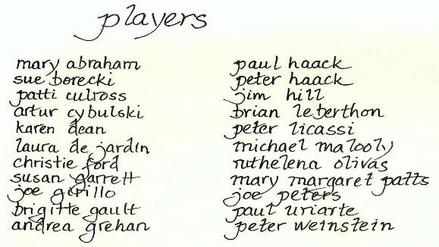 players
mary abraham
sue borecki
patti culross
artur cybulski
karen dean
laura de jardin
christie ford
susan garrett
joe girillo
brigitte gault
andrea grehan
paul haack
peter haack
jim hill
brian leberthon
peter licassi
michael malooly
ruthelena olivas
mary margaret patts
joe peters
paul uriarte
peter weinstein